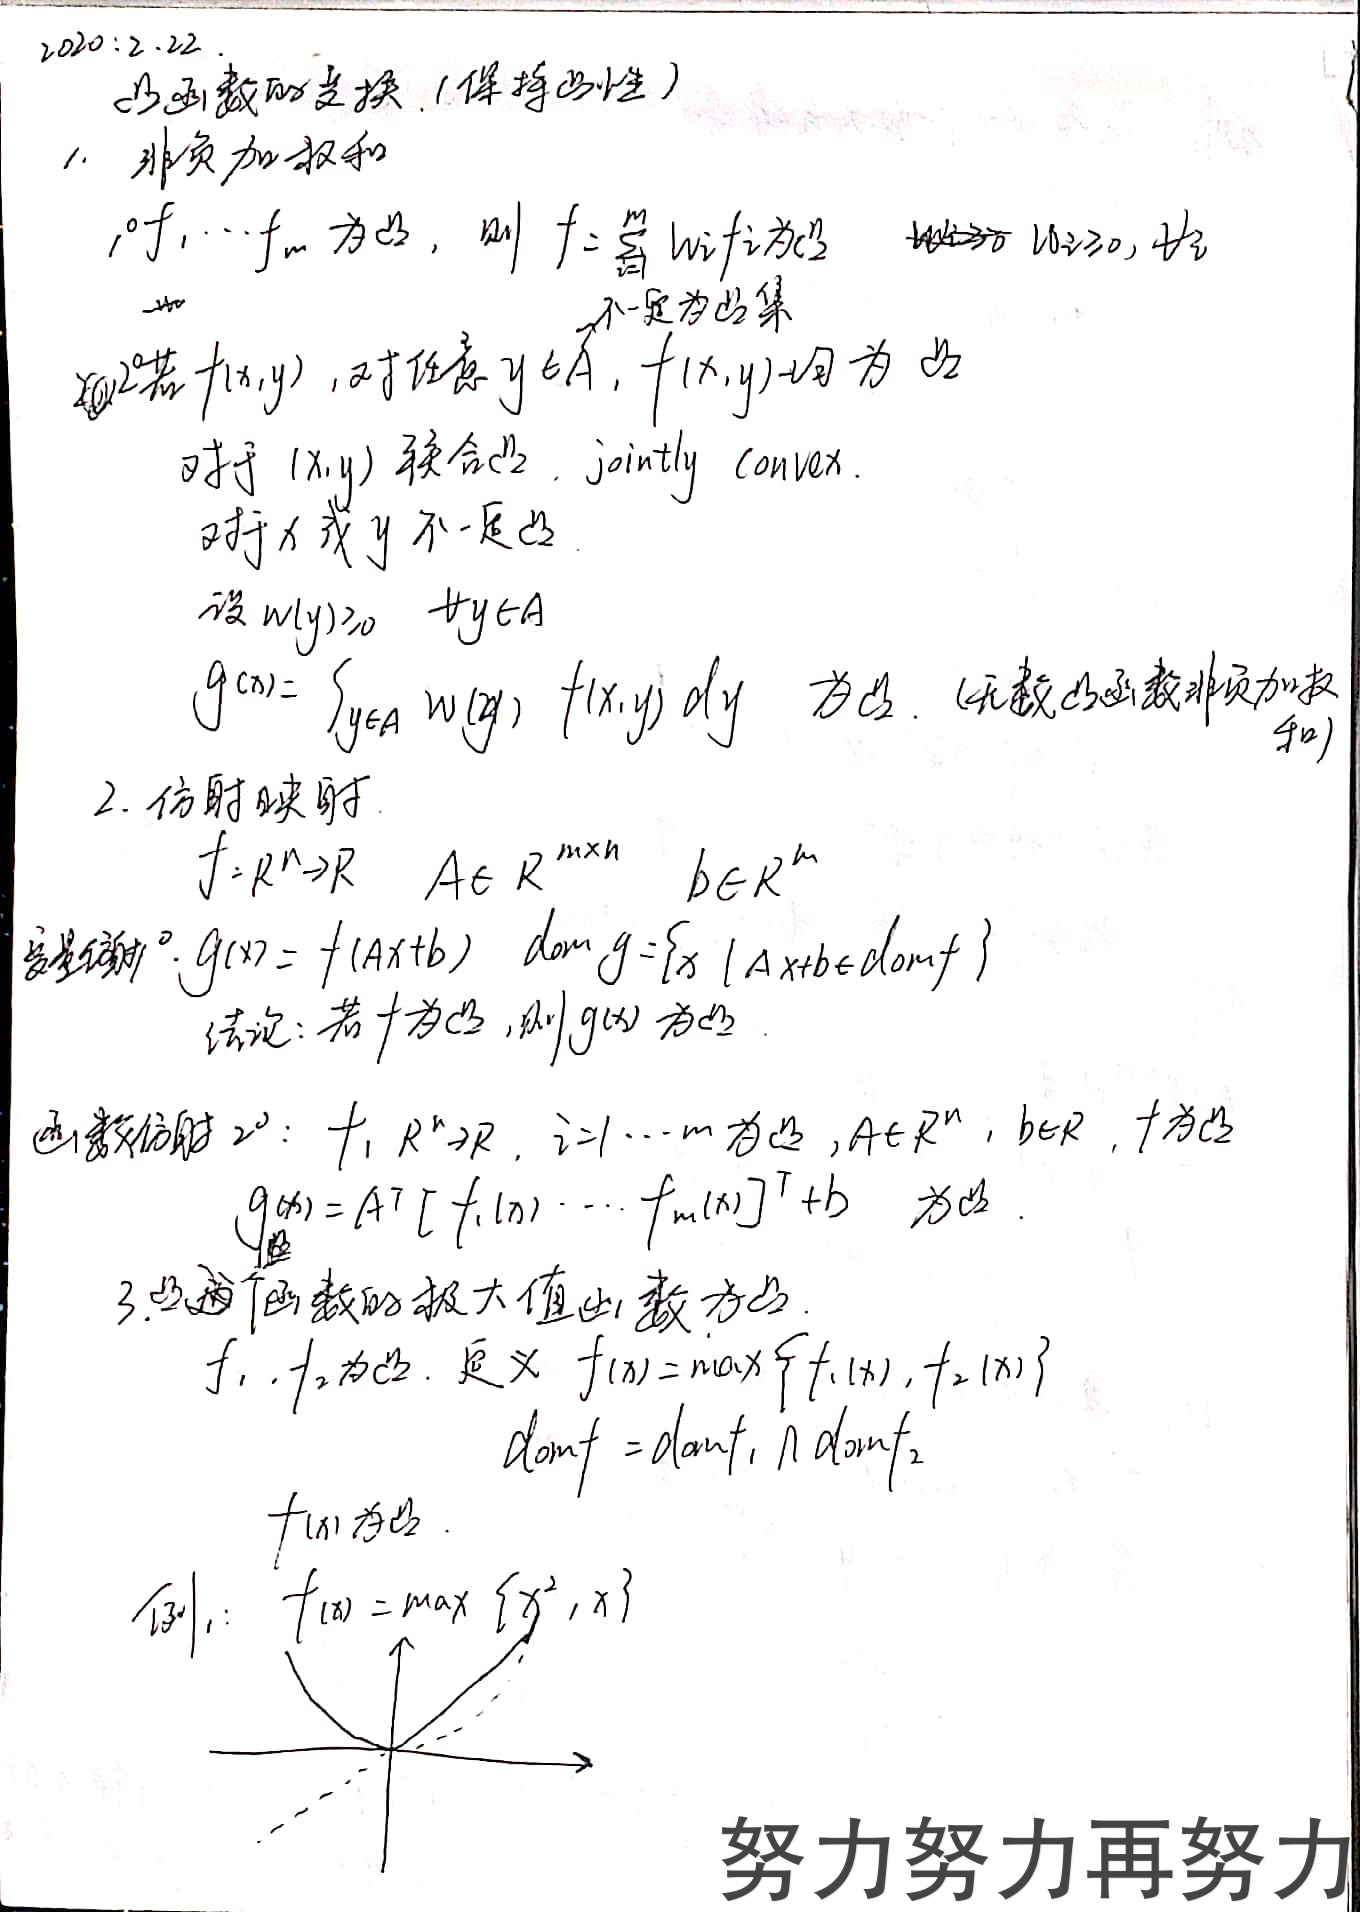 2020:2.22.
凸函数的变换.(保持凸性)
1. 非负加权和
1° f₁…fₘ 为凸, 则 f=∑ᵢ₌₁ᵐ wᵢfᵢ为凸 wᵢ≥0, ∀i
不一定为凸集
2°若 f(x,y),对任意y∈A, f(x,y)均为凸
对于 (x,y) 联合凸. jointly convex.
对于x或y不一定凸.
设w(y)≥0 ∀y∈A
g(x)=∫y∈A w(y) f(x,y)dy 为凸. (无数凸函数非负加权
和)
2. 仿射映射.
f=Rⁿ→R A∈R^{m×n} b∈Rᵐ
变量仿射1°. g(x)=f(Ax+b) dom g={x|Ax+b∈domf}
结论:若f为凸,则g(x)为凸.
函数仿射2°: f, Rⁿ→R, i=1…m为凸,A∈Rⁿ, b∈R, f为凸
g(x)=Aᵀ[f₁(x)……fₘ(x)]ᵀ+b 为凸.
3.凸函数的极大值函数为凸.
f₁,f₂为凸. 定义 f(x)=max{f₁(x),f₂(x)}
domf=domf₁∩domf₂
f(x)为凸.
例1: f(x)=max{x²,x}
努力努力再努力